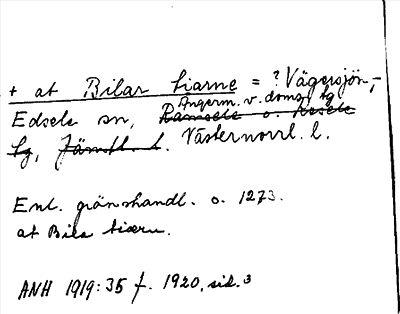 + at Bilar tiarne = ? Vägersjön,
Ångerm. v. doms. tg
Edsele sn, Ramsele o. Resele
tg, Jämtl. l. Västernorrl. l.
Enl. gränshandl. o. 1273.
at Bila tiærn.
ANH 1919:35 f. 1920, sid. 3